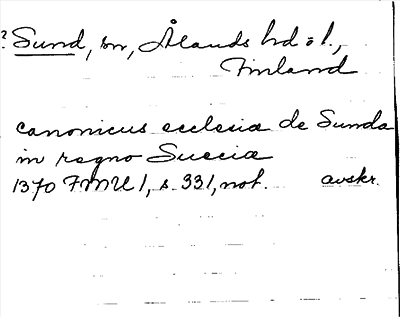 ? Sund, sn, Ålands hd o l.,
Finland
canonicus ecclesia de Sunda
in regno Suecia
1370 FMU 1, s. 331, not. avskr.